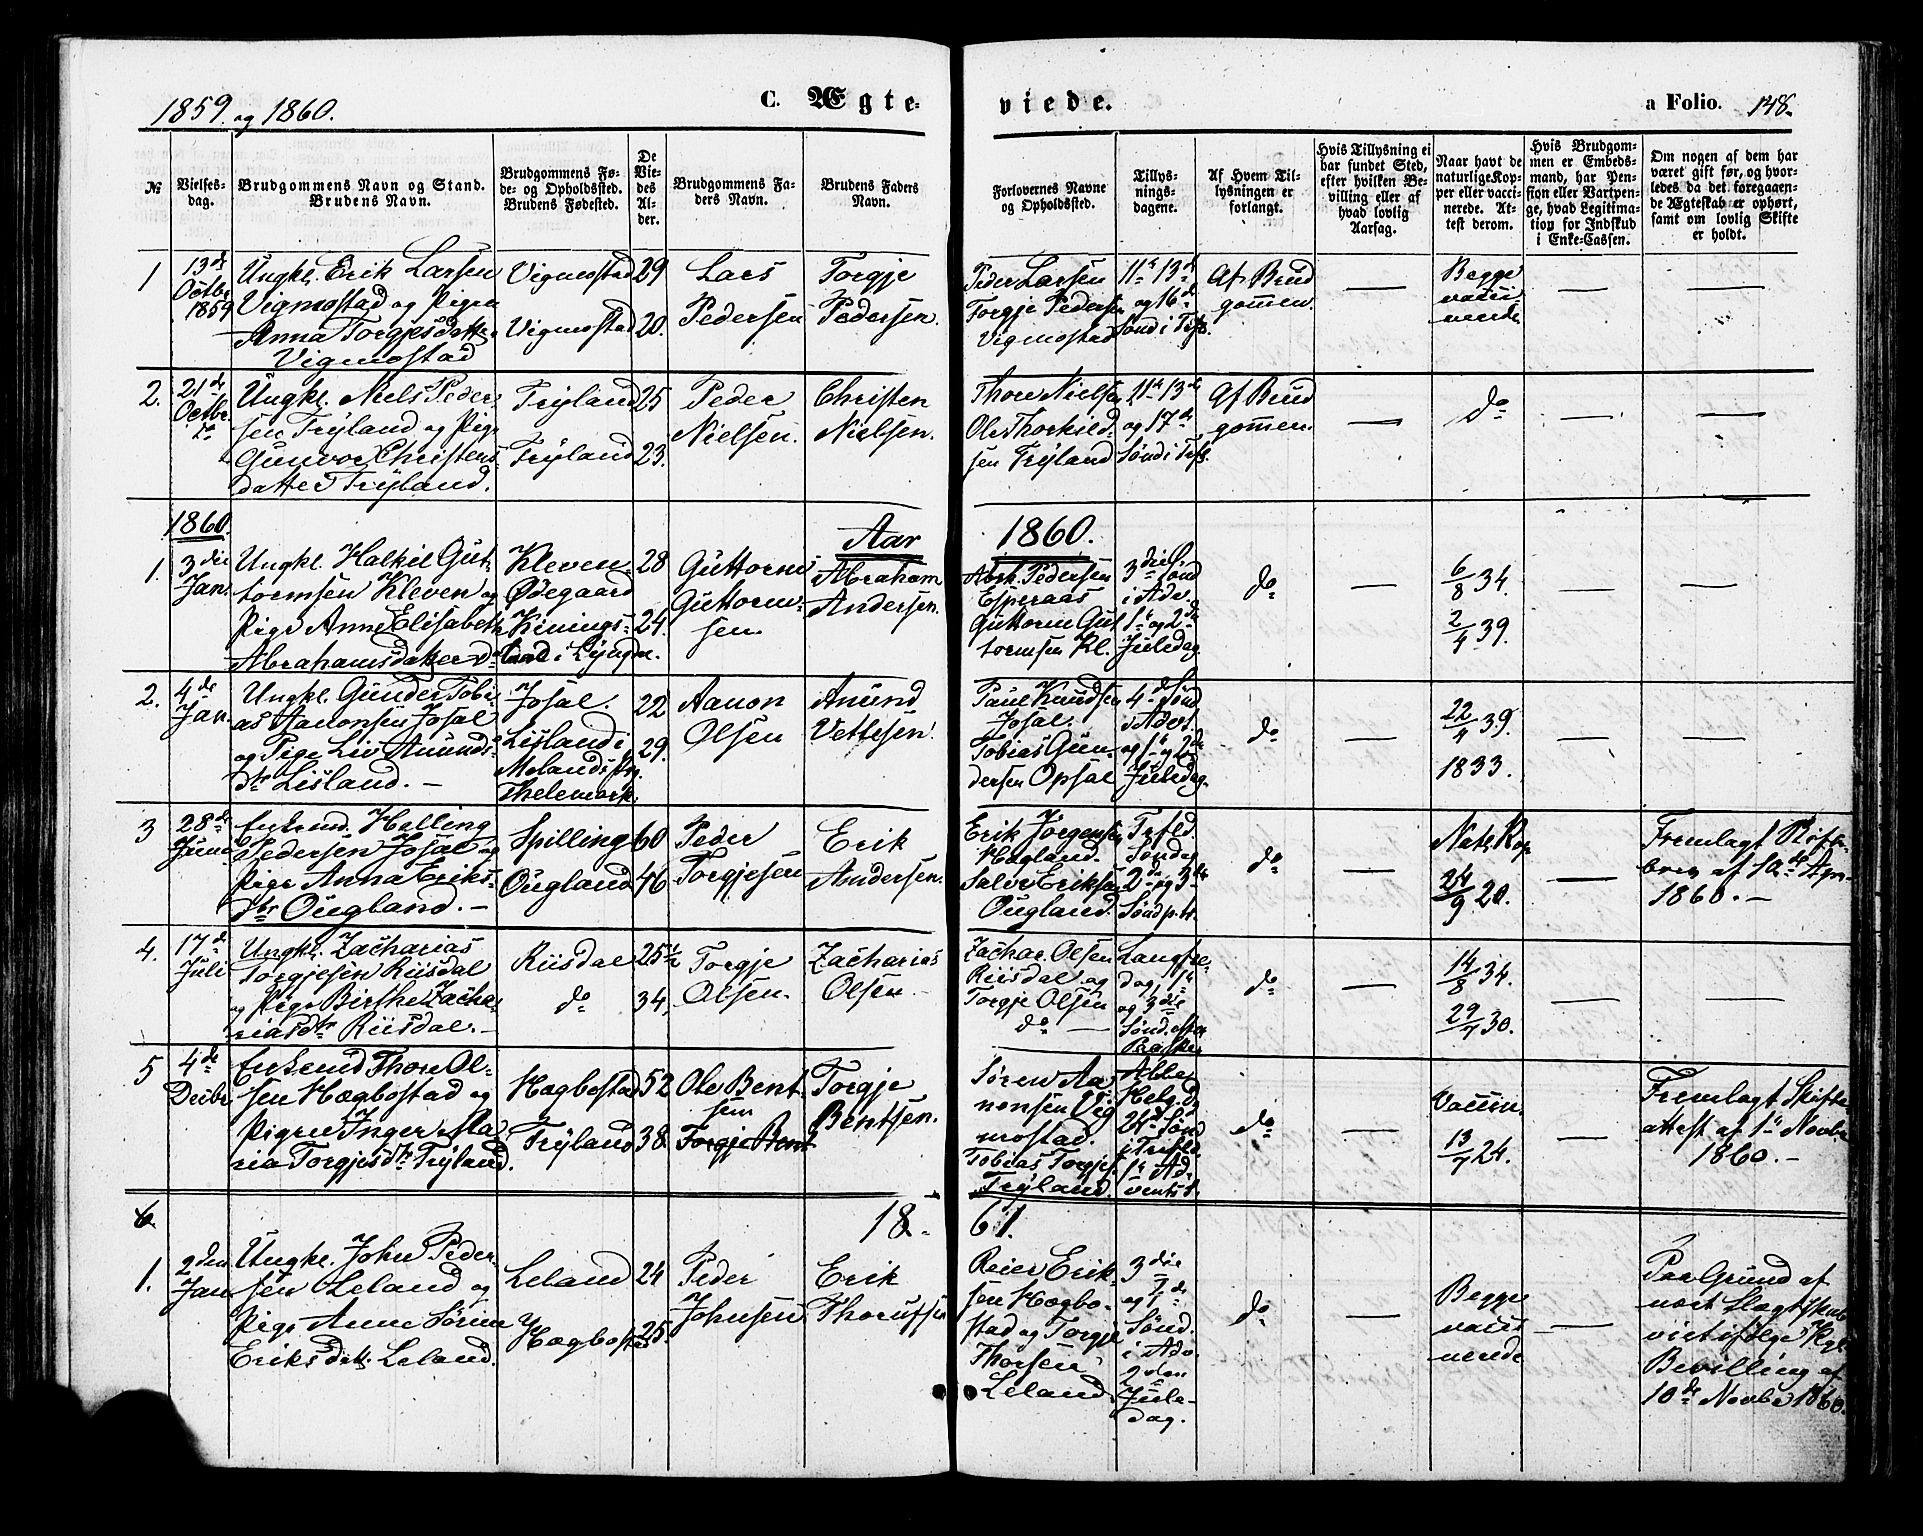 1859. og 1860.
C. Ægte-
viede.
a Folio. 148.
№
Vielses-
dag.
Brudgommens Navn og Stand.
Brudens Navn.
Brudgommens Fø-
de- og Opholdssted.
Brudens Fødested.
De
Vie-
des
Al-
der.
Brudgommens Fa-
ders Navn.
Brudens Faders
Navn.
Forlovernes Navne
og Opholdssted.
Tillys-
nings-
dagene.
Af Hvem Til-
lysningen er
forlangt.
Hvis Tillysning ei
har fundet Sted,
efter hvilken Be-
villing eller af
hvad lovlig
Aarsag.
Naar havt de
naturlige Kop-
per eller vacci-
nerede. At-
test derom.
Hvis Brudgom-
men er Embeds-
mand, har Pen-
sion eller Vartpen-
ge, hvad Legitima-
tion for Indskud
i Enke-Cassen.
Om nogen af dem har
været gift før, og hvor-
ledes da det foregaaen-
de Ægteskab er ophørt,
samt om lovlig Skifte
er holdt.
1
13de
Octbr.
1859
Ungkl. Erik Larsen
Vigmostad og Pigen
Anna Torgjesdatter
Vigmostad
Vigmostad
Vigmostad
29
20.
Lars
Pedersen
Torgje
Pedersen.
Peder Larsen
Torgje Pedersen
Vigmostad
11te 13de
og 16de
Sønd i Trf.
Af Brud
gommen.
Begge
vacci
nerede
2.
21de
Octbr.
do
Ungkl. Niels Peder
sen Trÿland og Pige
Gunvor Christens
datter Trÿland.
Trÿland
Trÿland
25
23.
Peder
Nielsen.
Christen
Nielsen.
Thore Nielsen
Ole Thorkild
sen Trÿland
11te 13de
og 17de
Sønd i Trf.
Af Brud
gommen.
do
1860.
Aar
1860.
1.
3die
Jan.
Ungkl. Halkil Gut
tormsen Kleven og
Pige Anne Elisabeth
Abrahamsdatter
Kleven
Ødegaard
Kinings-
land i Lÿngd.
28
24.
Guttorm
Guttorm-
sen
Abraham
Andersen.
Abrh. Pedersen
Esperaas
Guttorm Gut
tormsen Kl.
3die Sønd
i Adv.
1te og 2den
Juledag.
do
6/8 34.
2/4 39.
2.
4de
Jan.
Ungkl. Gunder Tobi
as Aanonsen Josal
og Pige Liv Anunds-
dtr Lisland. —
Josal.
Lisland i
Molands Prg.
Thelemark.
22
29.
Aanon
Olsen
Anund
Vettesen.
Paul Knudsen
Josal.
Tobias Gun-
dersen Opsal
4de Sønd
i Advt.
og 1te og 2den
Juledag.
do
22/4 39.
1833.
3
28de
Juni
Enkemd. Helling
Pedersen Josal og
Pige Anna Eriks-
dtr Ougland. —
Spilling
Ougland
60
46
Peder
Torgjesen
Erik
Andersen.
Erik Jørgensen
Hægland.
Salve Eriksen
Ougland.
Trfld.
Søndag
2den og 3die
Sønd p. tr.
do
Natl. Kop
24/9 20.
Fremlagt Skifte
brev af 10de Apr
1860. —
4.
17de
Juli
Ungkl. Zacharias
Torgjesen Riisdal
og Pige Birthe Zacha-
riasdtr Riisdal. —
Riisdal
do
25½
34,
Torgje
Olsen.
Zacharias
Olsen.
Zachar. Olsen
Riisdal og
Torgje Olsen
do —
Langfre-
dag, 1te
og 3die
Sønd. efter
Paaske
do
14/8 34.
29/7 30.
5
4de
Decbr
Enkemd Thore Ol-
sen Hægbostad og
Pigen Inger Ma
ria Torgjesdtr Trÿland.
Hægbostad
Trÿland
52
38.
Ole Bent
sen
Torgje Bent
Torgje
Bentsen.
Søren Aa
nonsen Vig
mostad.
Tobias Torgjes.
Trÿland.
Alle
Helg. d.
24de Sønd
i Trefld.
1te Ad.
vents S.
do
Vaccin.
13/7 24.
Fremlagt Skifte
attest af 1te Novbr
1860. —
6.
18
61.
1.
2den
Jan
Ungkl. John Peder
sen Leland og
Pige Anne Sørine
Eriksdtt. Leland.
Leland
Hægbostad
24
25
Peder
Johnsen
Erik
Thorussen
Reier Erik-
sen Hægbo-
stad og Torgje
Thorsen
Leland.
3die
og 4de
Sønd.
i Adv.
2den
Jule-
dag.
do
Begge
vacci
nerede
Paa Grund af
nært Slægtskab
viet ifølge Kgl.
Bevilling af
10de Novbr 1860.